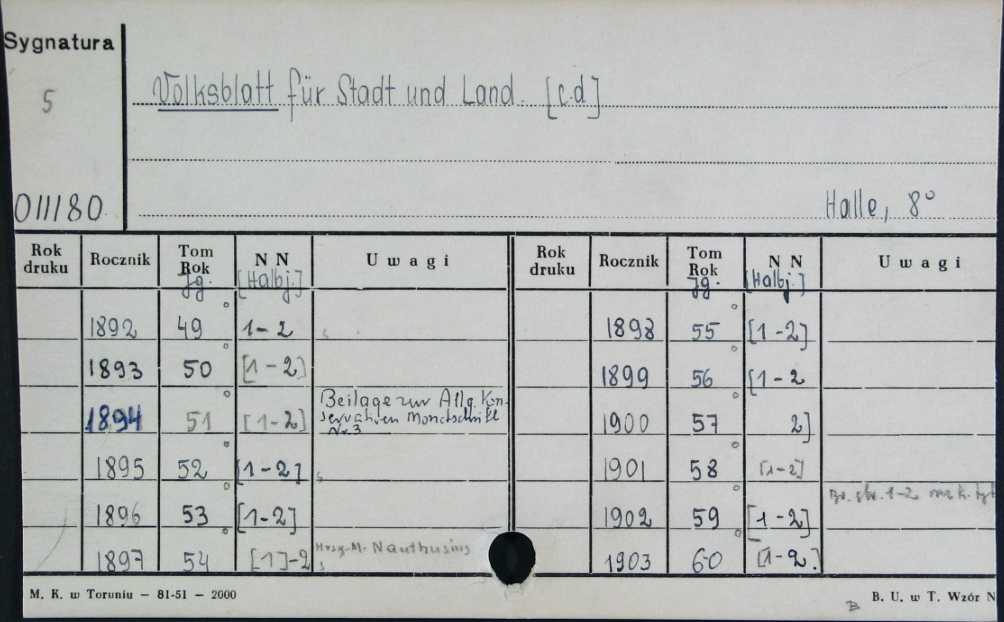 Sygnatura
5
Volksblatt für Stadt und Land. [c.d]
011180
Halle, 8°
Rok druku Rocznik Tom Rok N N U w a g i Rok druku Rocznik Tom Rok N N U w a g i
Jg. [Halbj.] Jg. [Halbj.]
1892 49 1-2 1898 55 [1-2]
1893 50 [1-2] 1899 56 [1-2
1894 51 [1-2] Beilage zur Allg. Kon- 1900 57 2]
servativen Monatschrift
Nr. 3
1895 52 [1-2] 1901 58 [1-2]
1896 53 [1-2] 1902 59 [1-2] 1-2
1897 54 [1]-2 Hrsg. M. Nauthusius 1903 60 [1-2.]
M. K. w Toruniu — 81-51 — 2000
B. U. w T. Wzór N